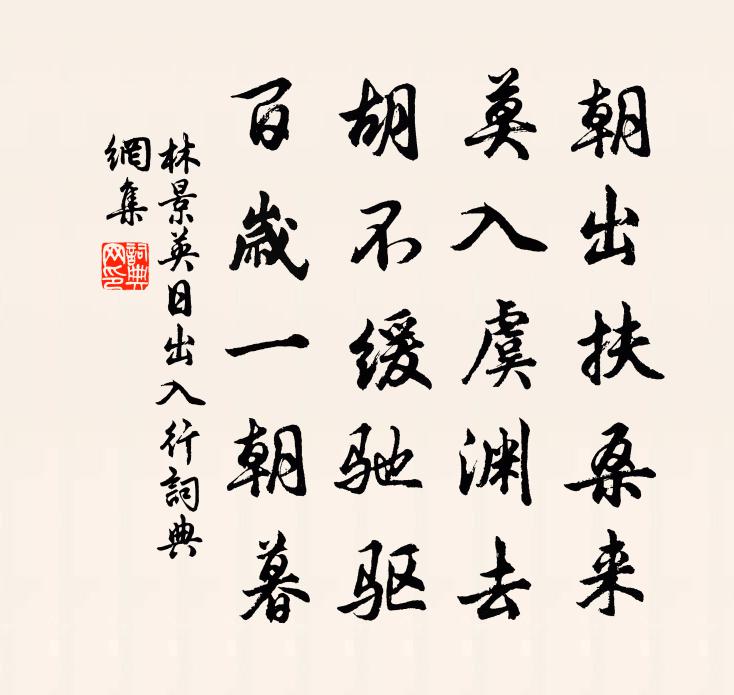 朝出扶桑来
莫入虞渊去
胡不缓驰驱
百歲一朝暮
林景英日出入行詞典
網集
詞典
网印